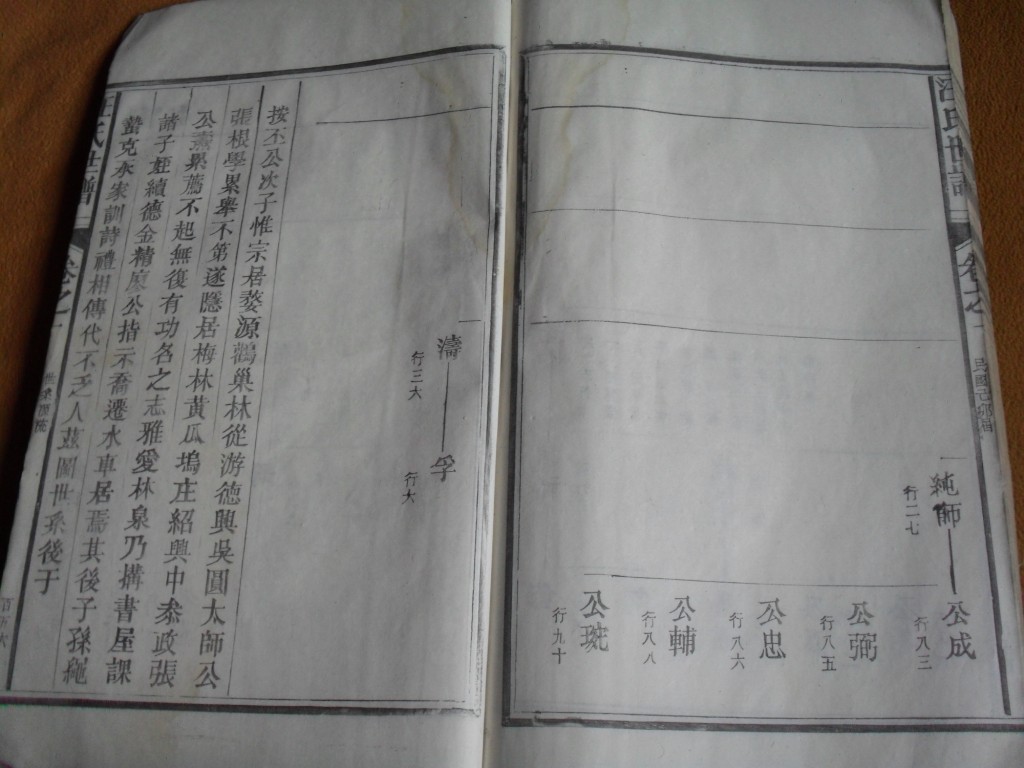 汪氏世譜
卷之一
純師
行二七
公成
行八三
公弼
行八五
公忠
行八六
公輔
行八八
公珫
行九十
濤
行三大
孚
行大
按丕公次子惟宗居婺源鵲巢林從游德興吳圓太師公
張根學累舉不第遂隱居梅林黃瓜塢庄紹興中叅政張
公燾舉薦不起無復有功名之志雅愛林泉乃搆書屋課
諸子姪績德金精廖公指示喬遷水車居焉其後子孫繩
蟄克承家訓詩禮相傳代不乏人茲圖世系後于
汪氏世譜
卷之一